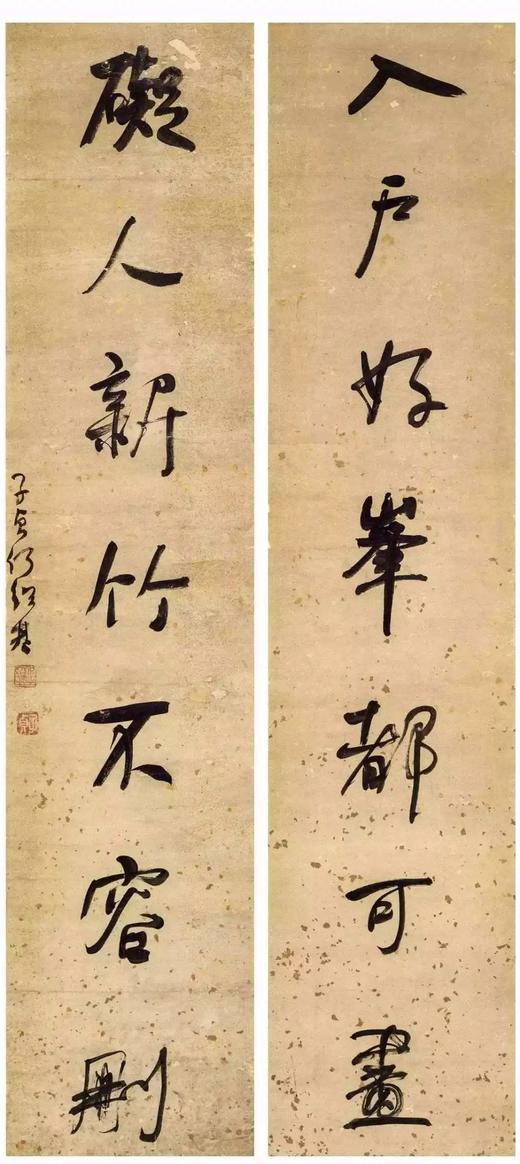 入户好峯都可畫
礙人新竹不容刪
子貞何紹基